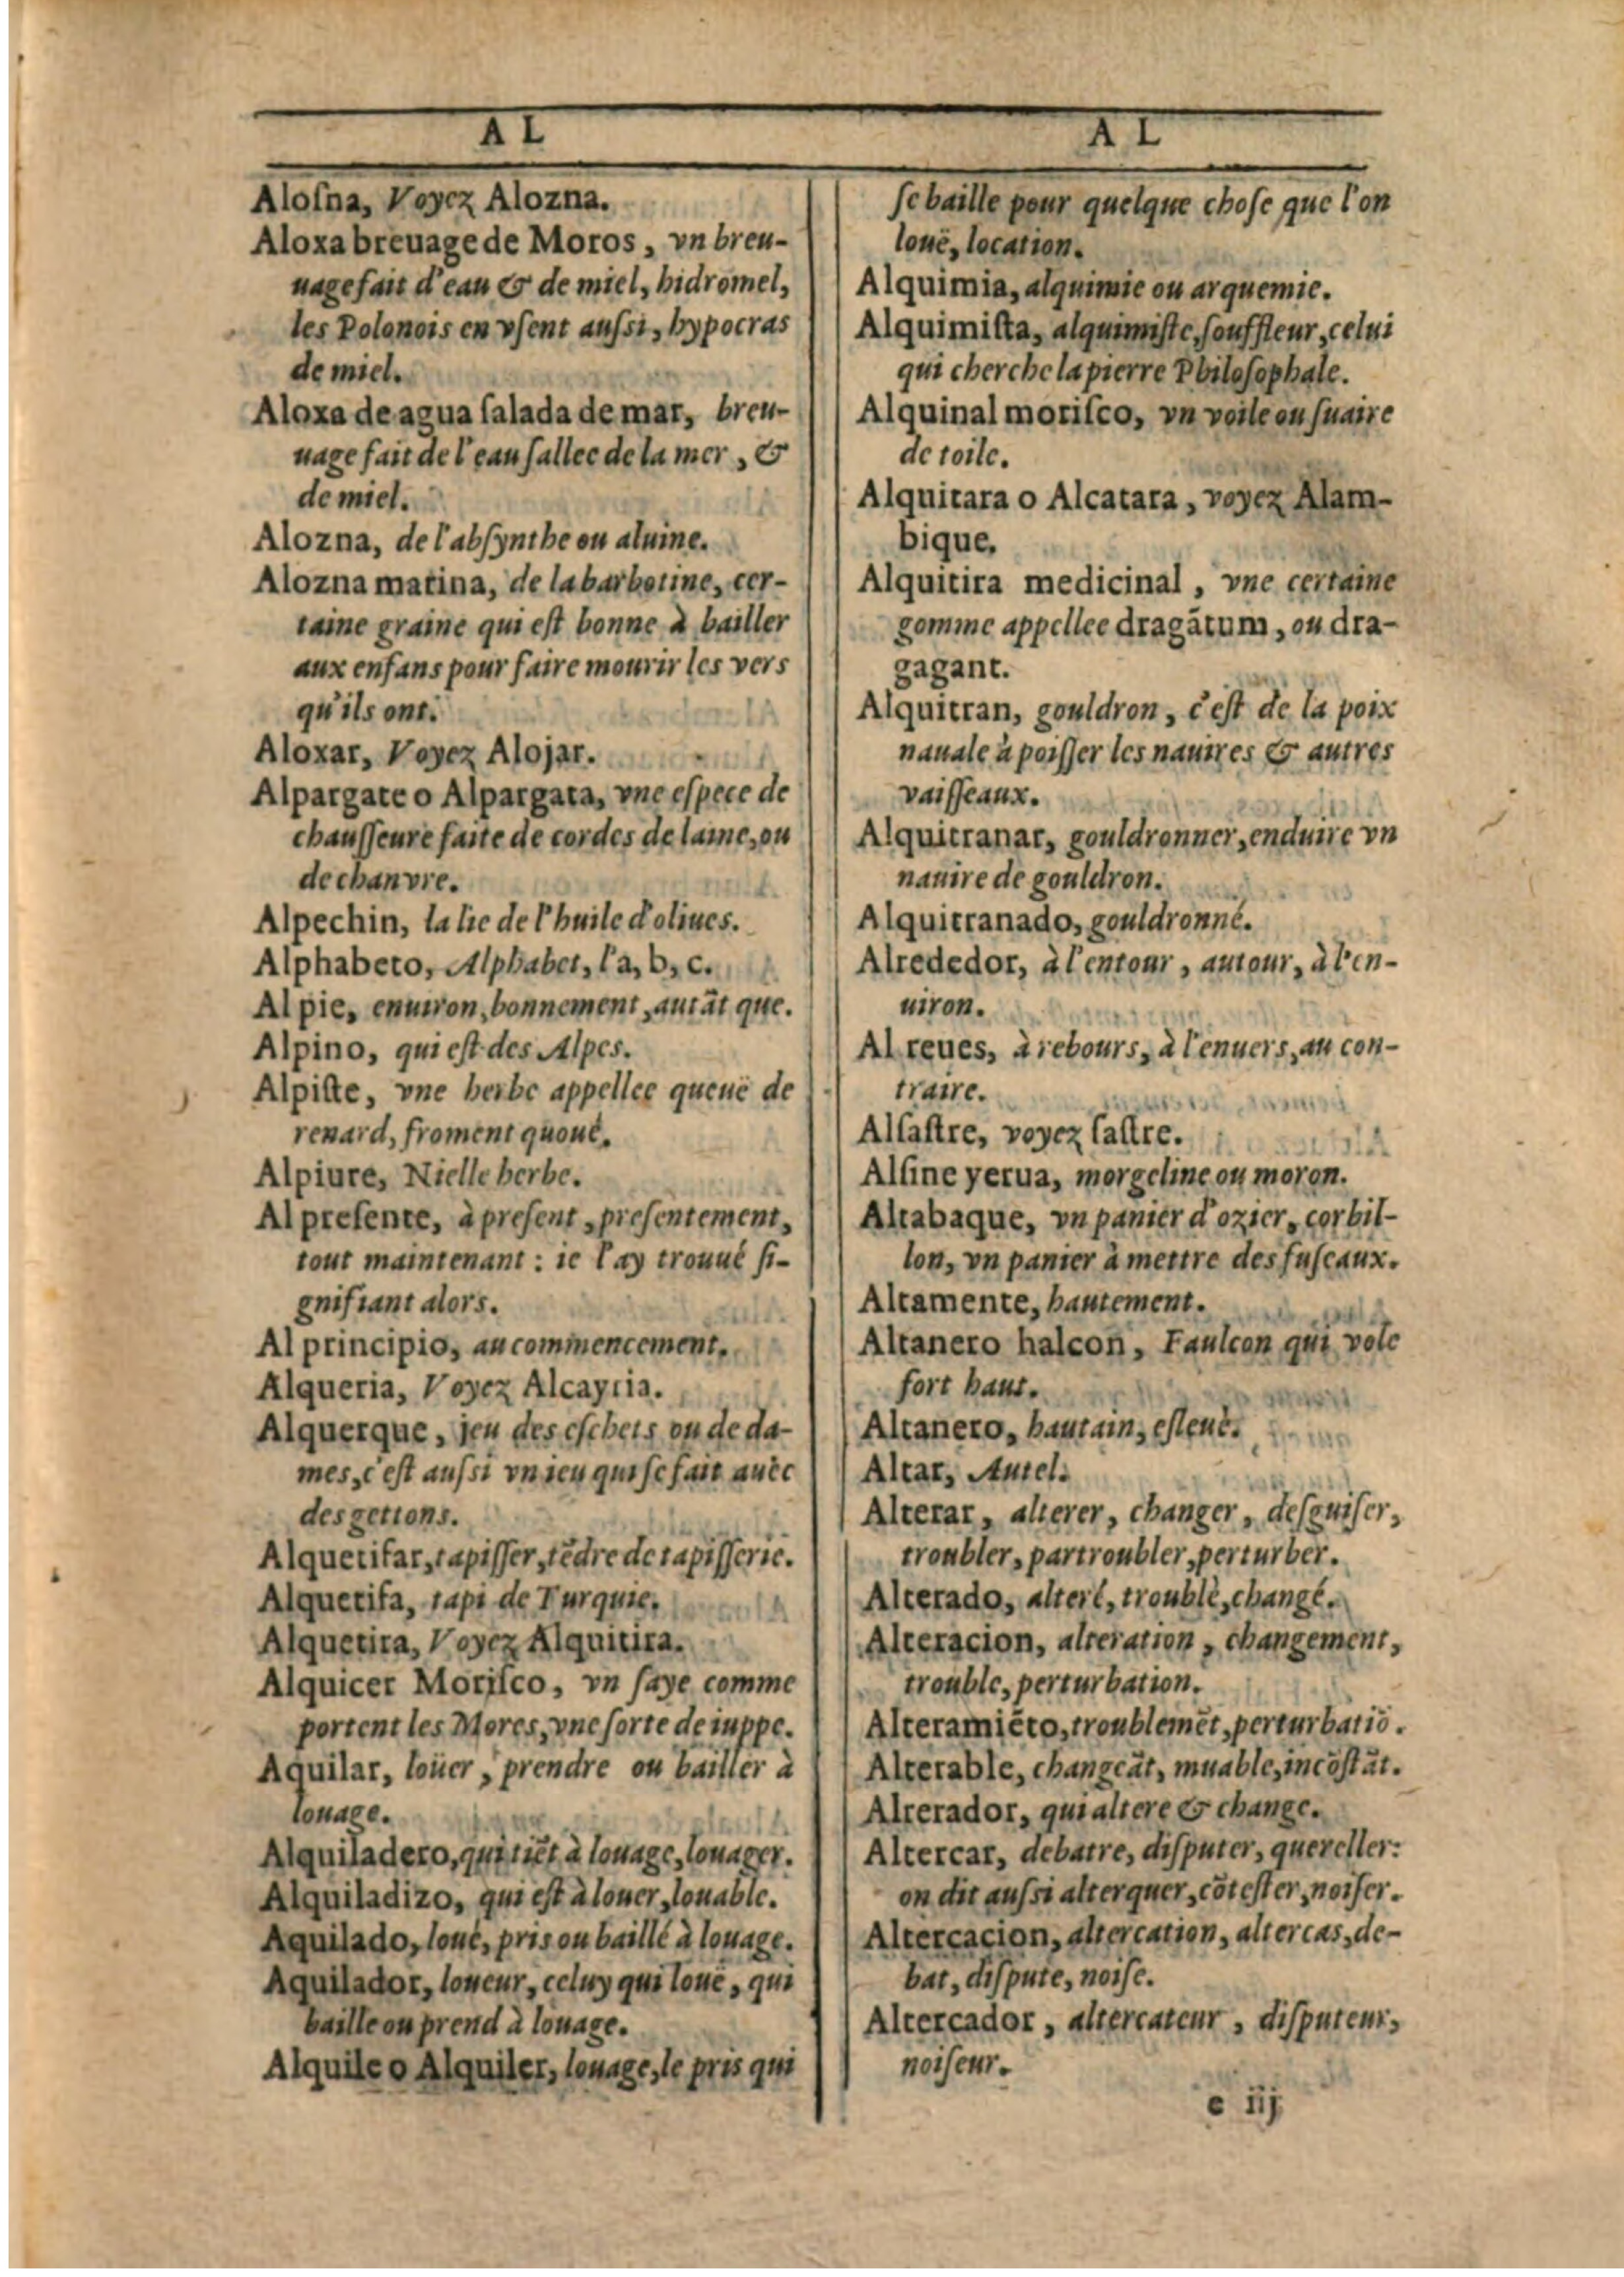 A L
Aloſna, Voyez Alozna.
Aloxa breuage de Moros, vn breu-
uage fait d'eau & de miel, hidromel,
les Polonois en vſent auſsi, hypocras
de miel.
Aloxa de agua ſalada de mar, breu-
uage fait de l'eau ſallee de la mer, &
de miel.
Alozna, de l'abſynthe ou aluine.
Alozna marina, de la barbotine, cer-
taine graine qui eſt bonne à bailler
aux enfans pour faire mourir les vers
qu'ils ont.
Aloxar, Voyez Alojar.
Alpargate o Alpargata, vne eſpece de
chauſſeure faite de cordes de laine, ou
de chanvre.
Alpechin, la lie de l'huile d'oliues.
Alphabeto, Alphabet, l'a, b, c.
Al pie, enuiron, bonnement, autāt que.
Alpino, qui eſt des Alpes.
Alpiſte, vne herbe appellee queuë de
renard, froment quoué.
Alpiure, Nielle herbe.
Al preſente, à preſent, preſentement,
tout maintenant : ie l'ay trouué ſi-
gnifiant alors.
Al principio, au commencement.
Alqueria, Voyez Alcayria.
Alquerque, jeu des eſchets ou de da-
mes, c'eſt auſsi vn ieu qui ſe fait auec
des gettons.
Alquetifar, tapiſſer, tēdre de tapiſſerie.
Alquetifa, tapi de Turquie.
Alquetira, Voyez Alquitira.
Alquicer Moriſco, vn ſaye comme
portent les Mores, vne ſorte de iuppe.
Aquilar, loüer, prendre ou bailler à
louage.
Alquiladero, qui tiēt à louage, louager.
Alquiladizo, qui eſt à louer, louable.
Aquilado, loué, pris ou baillé à louage.
Aquilador, loueur, celuy qui louë, qui
baille ou prend à louage.
Alquile o Alquiler, louage, le pris qui
A L
ſe baille pour quelque choſe que l'on
louë, location.
Alquimia, alquimie ou arquemie.
Alquimiſta, alquimiſte, ſouffleur, celui
qui cherche la pierre Philoſophale.
Alquinal moriſco, vn voile ou ſuaire
de toile.
Alquitara o Alcatara, voyez Alam-
bique.
Alquitira medicinal, vne certaine
gomme appellee dragātum, ou dra-
gagant.
Alquitran, gouldron, c'eſt de la poix
nauale à poiſſer les nauires & autres
vaiſſeaux.
Alquitranar, gouldronner, enduire vn
nauire de gouldron.
Alquitranado, gouldronné.
Alrededor, à l'entour, autour, à l'en-
uiron.
Al reues, à rebours, à l'enuers, au con-
traire.
Alſaſtre, voyez ſaſtre.
Alſine yerua, morgeline ou moron.
Altabaque, vn panier d'ozier, corbil-
lon, vn panier à mettre des fuſeaux.
Altamente, hautement.
Altanero halcon, Faulcon qui vole
fort haut.
Altanero, hautain, eſleué.
Altar, Autel.
Alterar, alterer, changer, deſguiſer,
troubler, partroubler, perturber.
Alterado, alteré, troublé, changé.
Alteracion, alteration, changement,
trouble, perturbation.
Alteramiēto, troublemēt, perturbatiō.
Alterable, changeāt, muable, incōſtāt.
Alterador, qui altere & change.
Altercar, debatre, diſputer, quereller:
on dit auſsi alterquer, cōteſter, noiſer.
Altercacion, altercation, altercas, de-
bat, diſpute, noiſe.
Altercador, altercateur, diſputeur,
noiſeur.
e iij